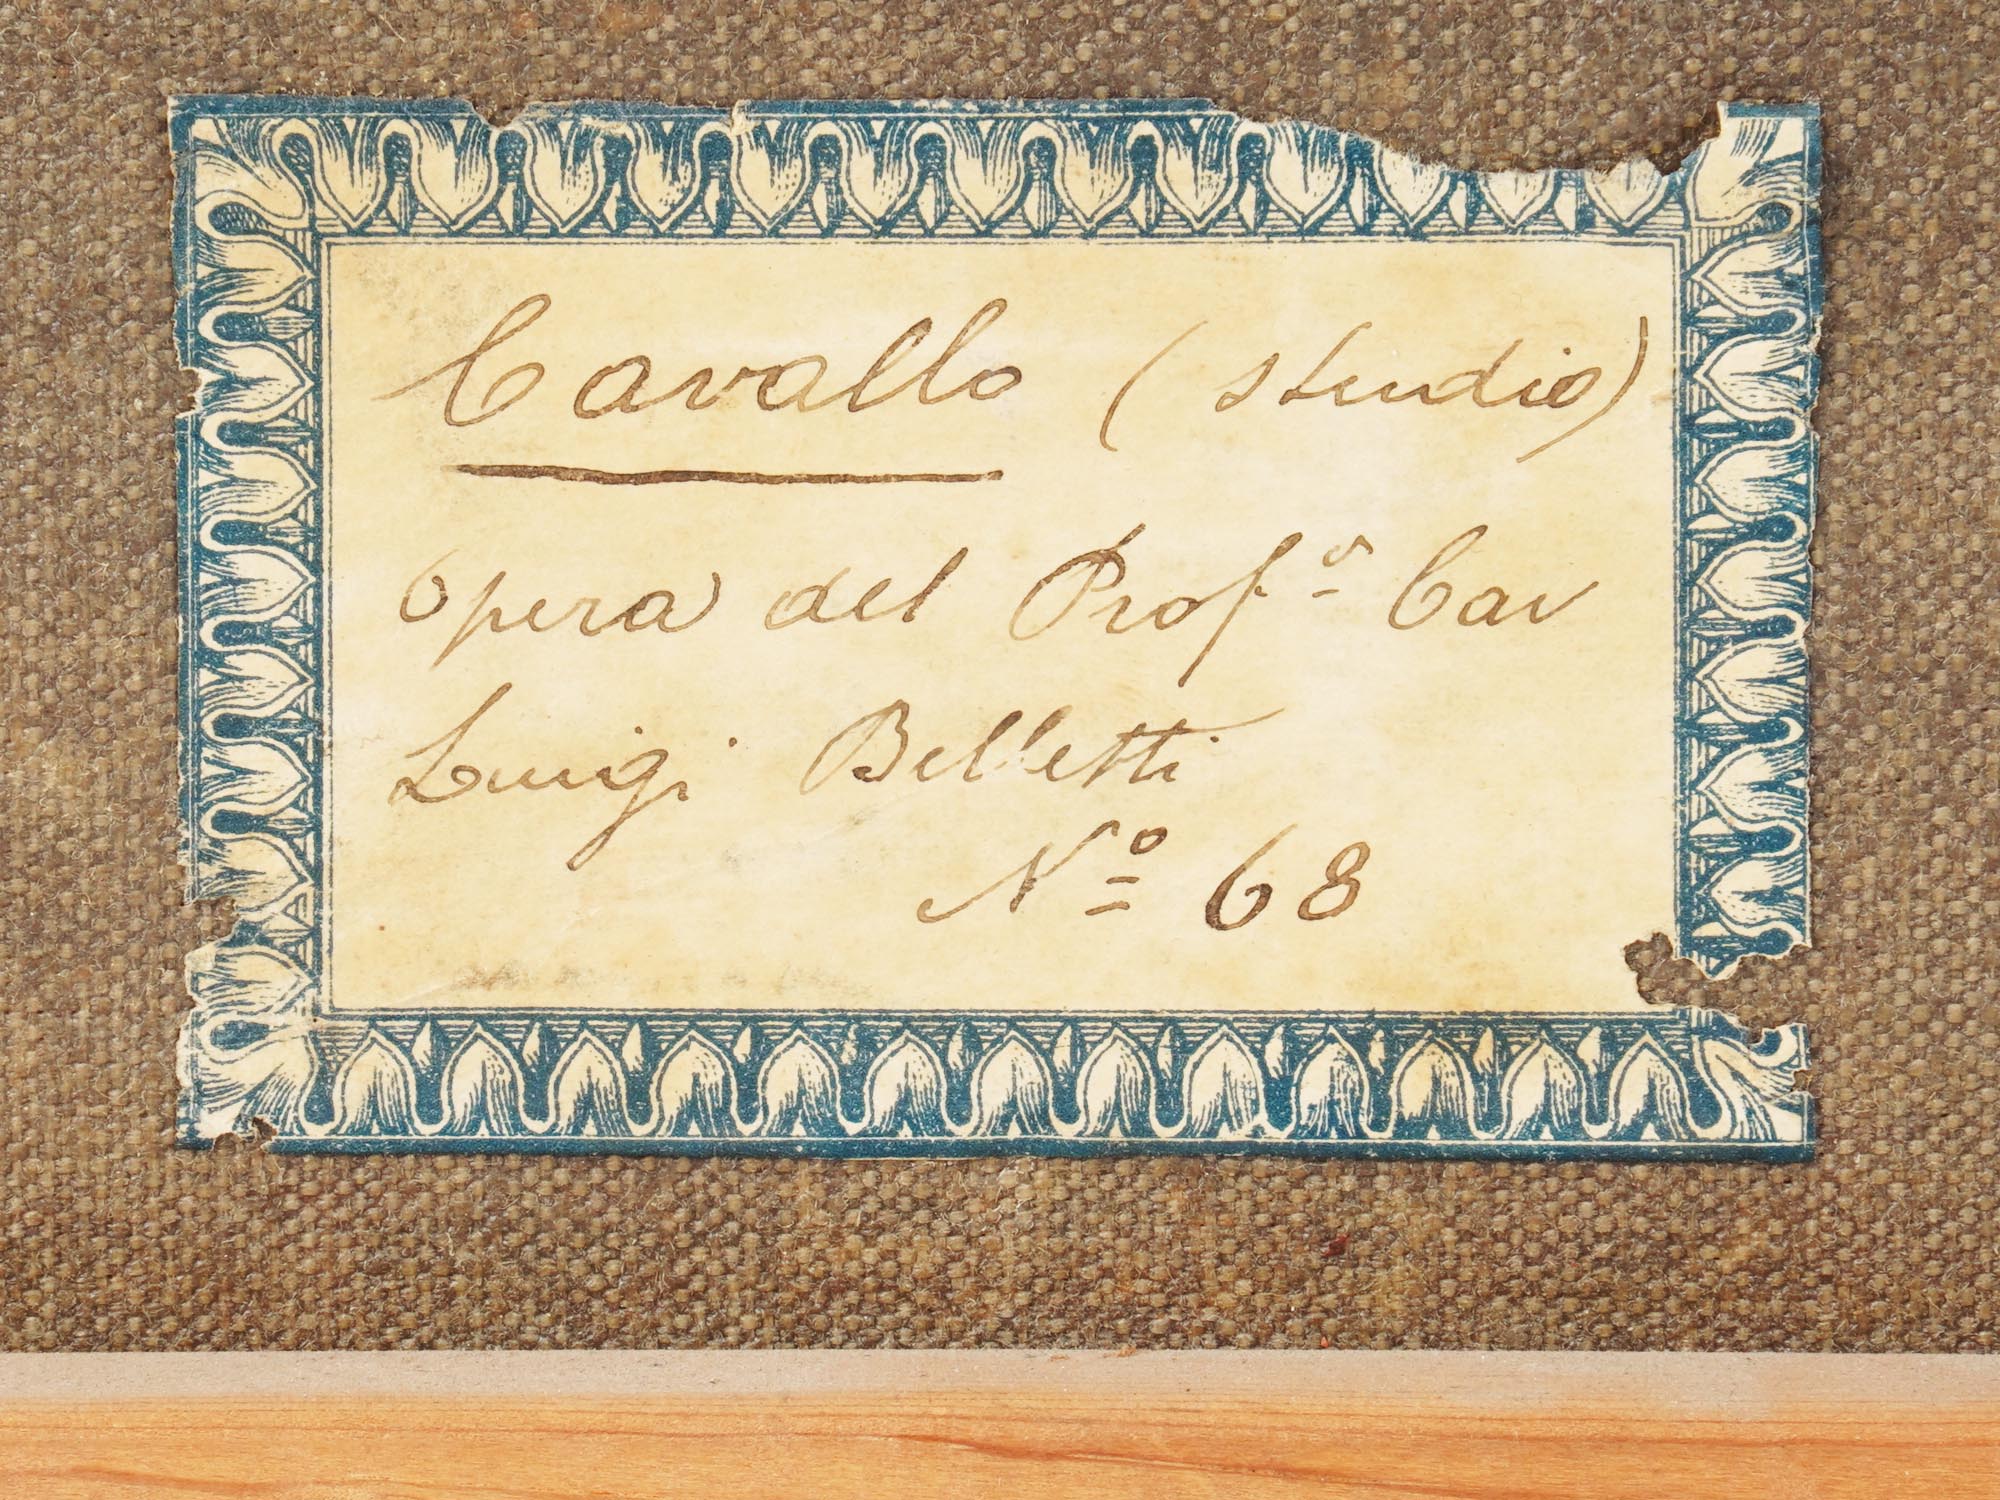 Cavallo (studio)
Opera del Prof.º Cav
Luigi Belletti
Nº 68